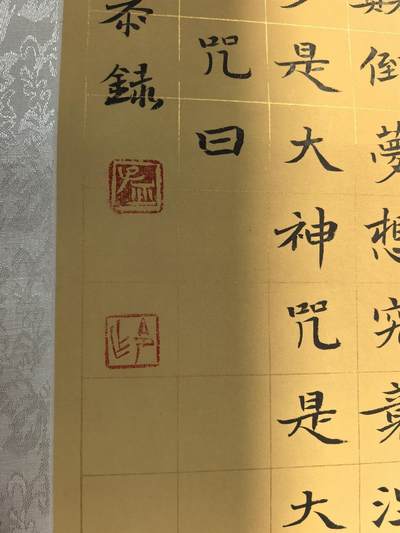 倒夢想究竟涅
是大神咒是大
咒曰
録